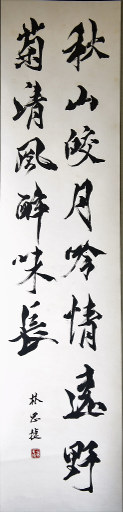 秋山皎月吟情遠野
菊清風醉味長
林思捷